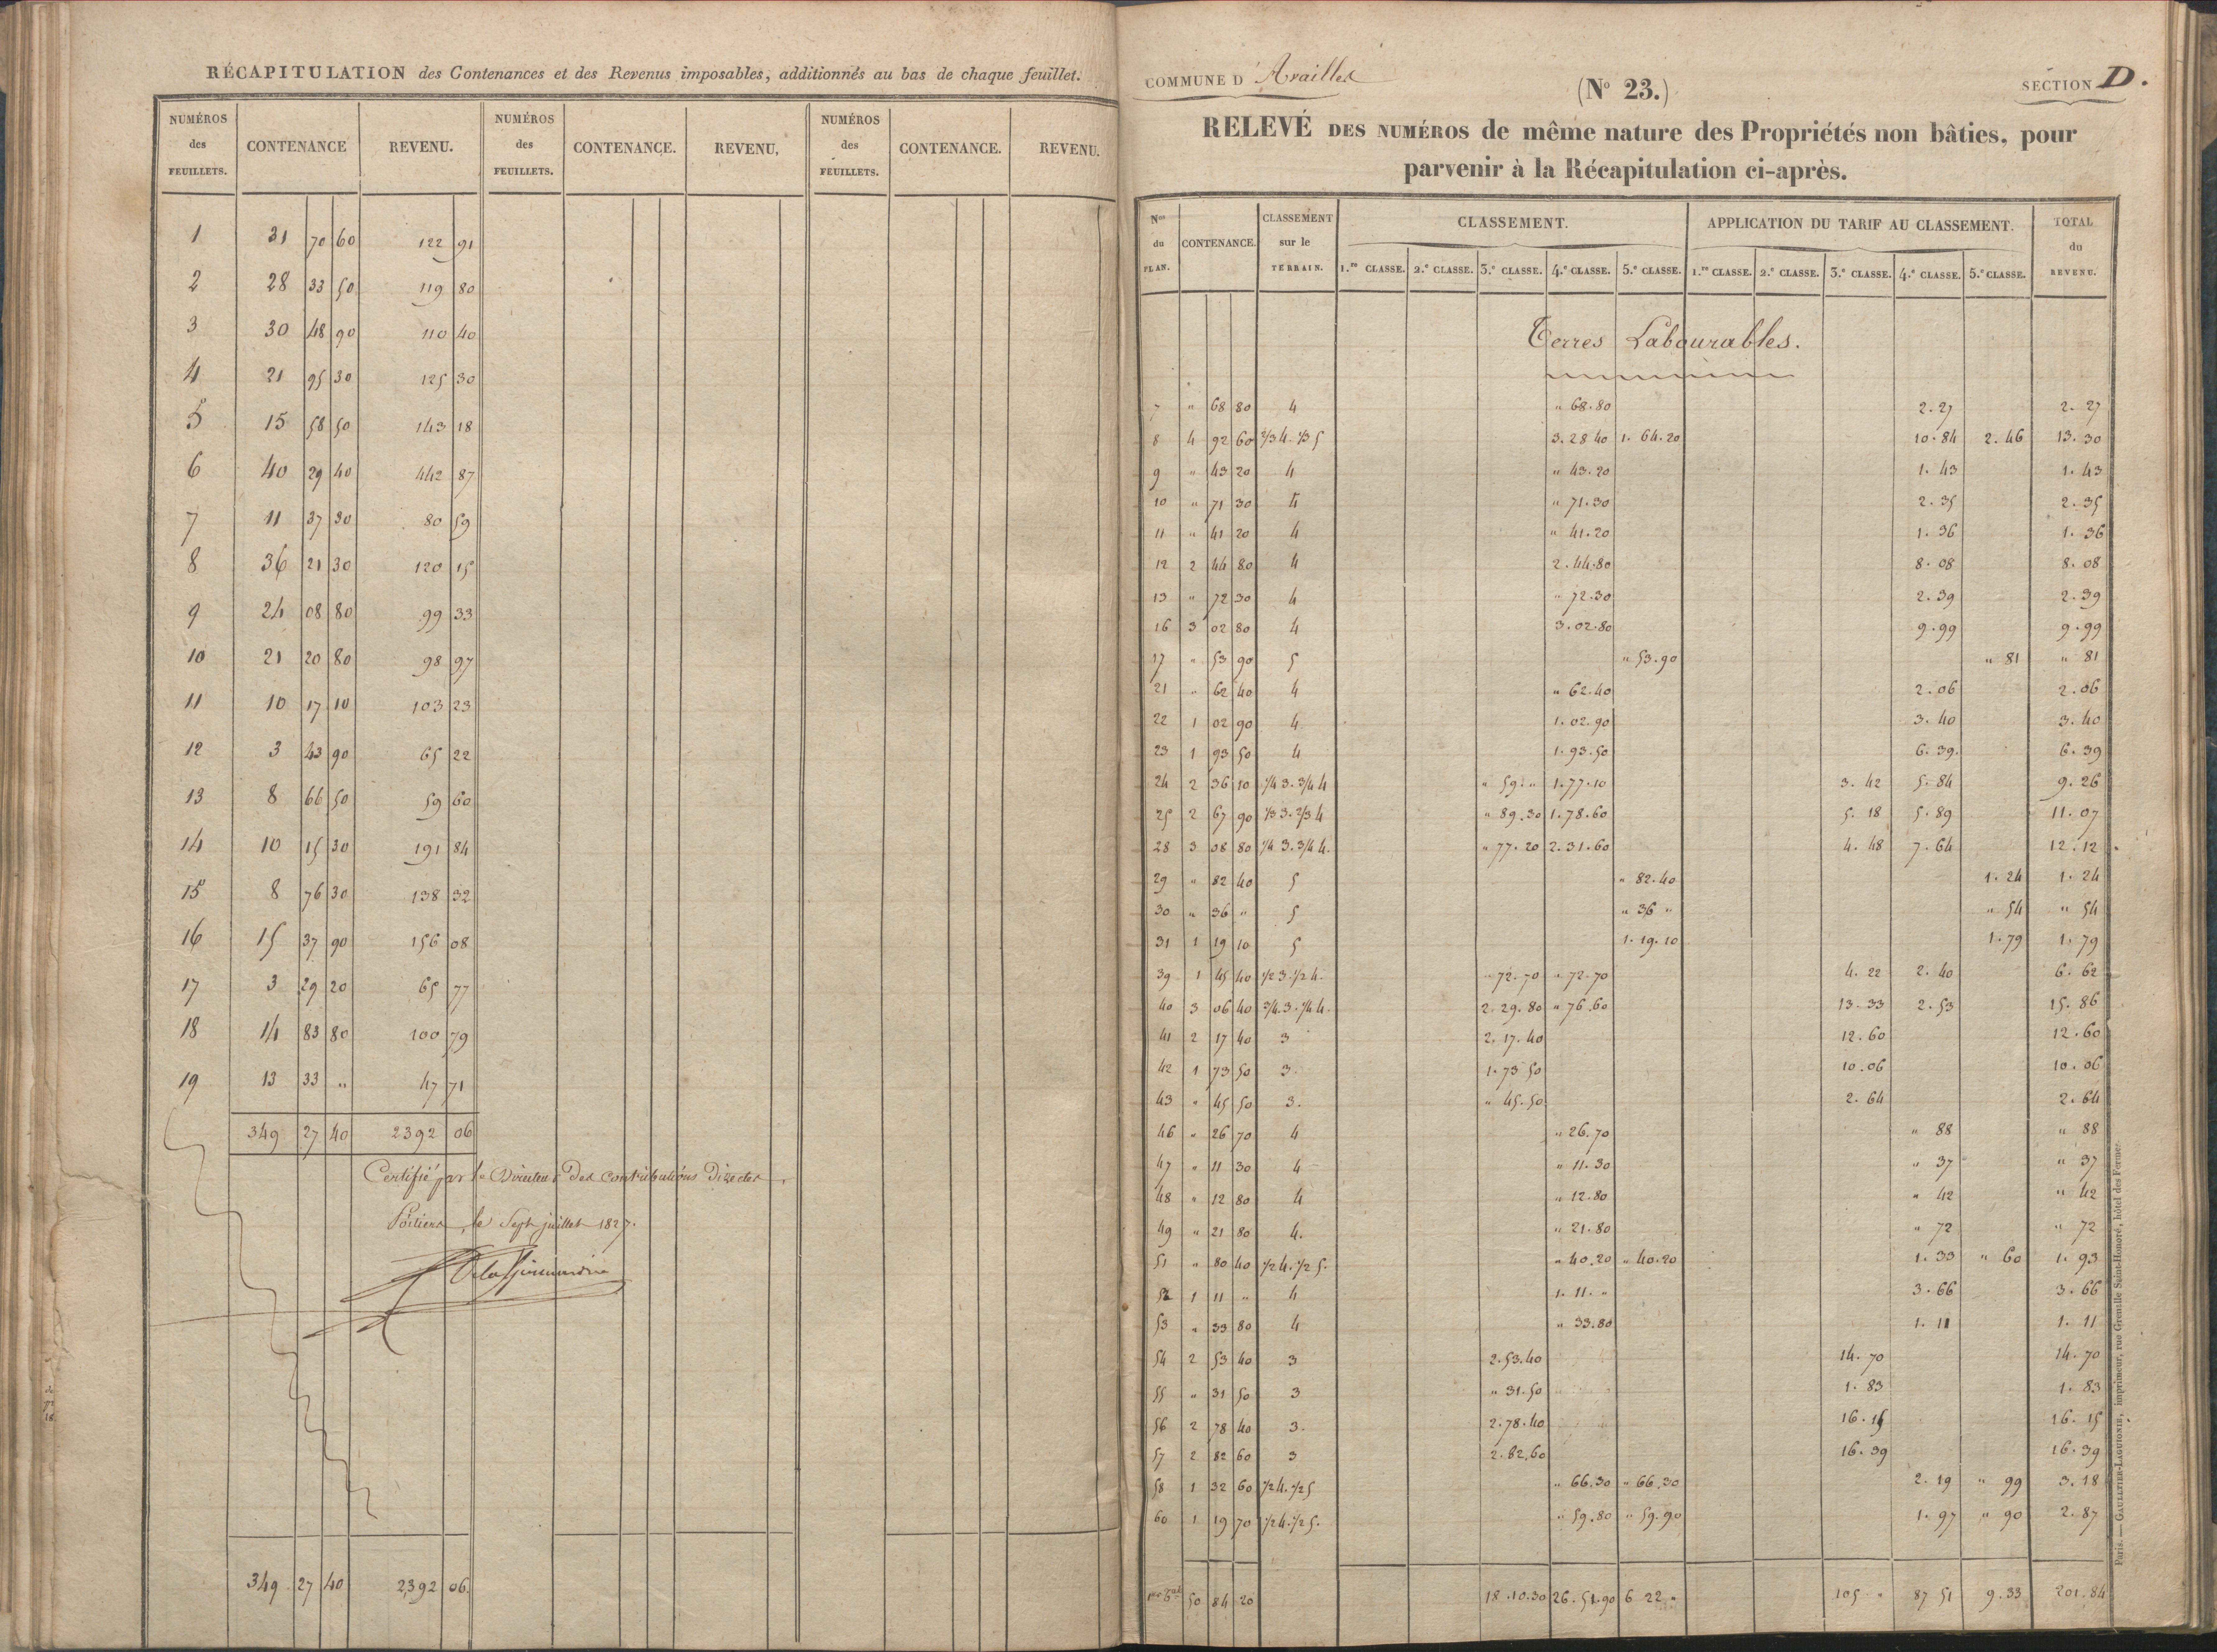 RÉCAPITULATION des Contenances et des Revenus imposables, additionnés au bas de chaque feuillet.
NUMÉROS des FEUILLETS. CONTENANCE REVENU. NUMÉROS des FEUILLETS. CONTENANCE. REVENU, NUMÉROS des FEUILLETS. CONTENANCE. REVENU.
1 31 70 60 122 91
2 28 33 50 119 80
3 30 48 90 110 40
4 21 95 30 125 30
5 15 58 50 143 18
6 40 29 40 442 87
7 11 37 30 80 59
8 36 21 30 120 15
9 24 08 80 99 33
10 21 20 80 98 97
11 10 17 10 103 23
12 3 43 90 65 22
13 8 66 50 59 60
14 10 15 30 191 84
15 8 76 30 138 32
16 15 37 90 156 08
17 3 29 20 65 77
18 14 83 80 100 79
19 13 33 " 47 71
349 27 40 2392 06
Certifié par le Directeur Des Contributions Directes,
Poitiers, le Sept juillet 1827.
349 27 40 2392 06.
COMMUNE D' Availles
(No 23.)
SECTION D.
RELEVÉ DES NUMÉROS de même nature des Propriétés non bâties, pour
parvenir à la Récapitulation ci-après.
Nos du PLAN. CONTENANCE. CLASSEMENT sur le TERRAIN. CLASSEMENT. APPLICATION DU TARIF AU CLASSEMENT. TOTAL du REVENU.
1.re CLASSE. 2.e CLASSE. 3.e CLASSE. 4.e CLASSE. 5.e CLASSE. 1.re CLASSE. 2.e CLASSE. 3.e CLASSE. 4.e CLASSE. 5.e CLASSE.
Terres Labourables.
7 " 68 80 4 " 68.80 2.27 2.27
8 4 92 60 2/3 4. 1/3 5 3.28 40 1.64.20 10.84 2.46 13.30
9 " 43 20 4 " 43.20 1.43 1.43
10 " 71 30 4 " 71.30 2.35 2.35
11 " 41 20 4 " 41.20 1.36 1.36
12 2 44 80 4 2.44.80 8.08 8.08
13 " 72 30 4 " 72.30 2.39 2.39
16 3 02 80 4 3.02.80 9.99 9.99
17 " 53 90 5 " 53.90 " 81 " 81
21 " 62 40 4 " 62.40 2.06 2.06
22 1 02 90 4 1.02.90 3.40 3.40
23 1 93 50 4 1.93.50 6.39. 6.39
24 2 36 10 1/4 3. 3/4 4 " 59." 1.77.10 3.42 5.84 9.26
25 2 67 90 1/3 3. 2/3 4 " 89.30 1.78.60 5.18 5.89 11.07
28 3 08 80 1/4 3. 3/4 4. " 77.20 2.31.60 4.48 7.64 12.12
29 " 82 40 5 " 82.40 1.24 1.24
30 " 36 " 5 " 36 " " 54 " 54
31 1 19 10 5 1.19.10 1.79 1.79
39 1 45 40 1/2 3. 1/2 4. " 72.70 " 72.70 4.22 2.40 6.62
40 3 06 40 3/4. 3. 1/4 4. 2.29.80 " 76.60 13.33 2.53 15.86
41 2 17 40 3 2.17.40 12.60 12.60
42 1 73 50 3. 1.73 50 10.06 10.06
43 " 45 50 3. " 45.50 2.64 2.64
46 " 26 70 4 " 26.70 " 88 " 88
47 " 11 30 4 " 11.30 " 37 " 37
48 " 12 80 4 " 12.80 " 42 " 42
49 " 21 80 4. " 21.80 " 72 " 72
51 " 80 40 1/2 4. 1/2 5. " 40.20 " 40.20 1.33 " 60 1.93
52 1 11 " 4 1.11." 3.66 3.66
53 " 33 80 4 " 33.80 1.11 1.11
54 2 53 40 3 2.53.40 14.70 14.70
55 " 31 50 3 " 31.50 1.83 1.83
56 2 78 40 3. 2.78.40 16.15 16.15
57 2 82 60 3 2.82.60 16.39 16.39
58 1 32 60 1/2 4. 1/2 5 " 66.30 " 66.30 2.19 " 99 3.18
60 1 19 70 1/2 4. 1/2 5. " 59.80 " 59.90 1.97 " 90 2.87
50 84 20 18.10.30 26.51.90 6 22 " 105 " 87 51 9.33 201.84
Paris. — GAULTIER-LAGUIONIE, imprimeur, rue Grenelle Saint-Honoré, hôtel des Fermes